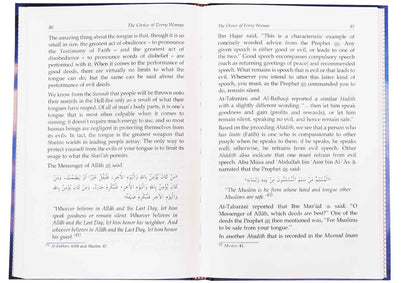 80 The Choice of Every Woman
The amazing thing about the tongue is that, though it is so
small in size, the greatest act of obedience – to pronounce
the Testimony of Faith – and the greatest act of
disobedience – to pronounce words of disbelief – are
performed with it. When it comes to the performance of
good deeds, there are virtually no limits to what the
tongue can do; but the same can be said about the
performance of evil deeds.
We know from the Sunnah that people will be thrown onto
their nostrils in the Hell-fire only as a result of what their
tongues have reaped. Of all of man's body parts, it is one's
tongue that is most often culpable when it comes to
sinning; it doesn't require much energy to use, and so most
human beings are negligent in protecting themselves from
its evils. In fact, the tongue is the greatest weapon that
Shaitân wields in leading people astray. The only way to
protect yourself from the evils of your tongue is to limit its
usage to what the Shari'ah permits.
The Messenger of Allâh ﷺ said:
"Whoever believes in Allâh and the Last Day, let him
speak goodness or remain silent. Whoever believes in
Allâh and the Last Day, let him honor his neighbor.
And whoever believes in Allâh and the Last Day, let him honor
his guest."
The Choice of Every Woman 81
Ibn Hajar said, "This is a characteristic example of
concisely worded advice from the Prophet ﷺ. Any
given speech is either good or evil, or leads to one of
the two." Good speech encompasses compulsory speech
(such as returning greetings of peace) and recommended
speech. What remains is speech that is evil or that leads to
evil. Whenever you intend to enter into this latter kind of
speech, you must, as the Prophet ﷺ commanded you to
do, remain silent.
At-Tabarâni and Al-Baihaqi reported a similar Hadîth
with a slightly different wording: "... then let him speak
goodness and gain (profits and rewards), or let him
remain silent, speaking no evil, and hence remain safe."
Based on the preceding Ahâdîth, we see that a person who
has Imân (Faith) is one who is compassionate to other
people when he speaks to them; if he speaks, he speaks
well; otherwise, he refrains from evil speech. Other
Ahâdîth also indicate that one must refrain from evil
speech. Abu Mûsa and 'Abdullah bin 'Amr bin Al-'As
narrated that the Prophet ﷺ said:
"The Muslim is he from whose hand and tongue other
Muslims are safe."
At-Tabarâni reported that Ibn Mas'ûd said, "O
Messenger of Allâh, which deeds are best?" One of the
deeds the Prophet ﷺ then mentioned was, "For Muslims
to be safe from your tongue."
In another Ahâdîth that is recorded in the Musnad Imam